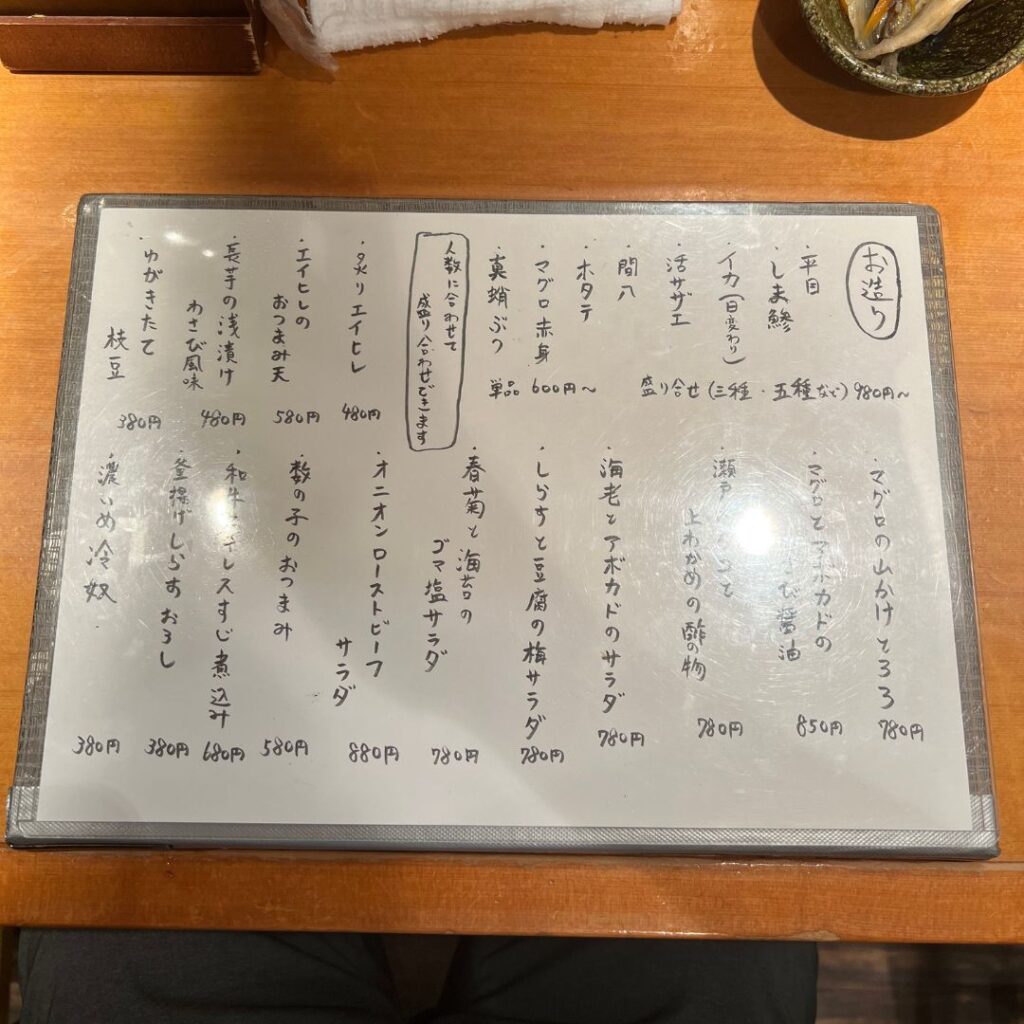 お造り
・平目
・しま鯵
・イカ(日変わり)
・活サザエ
・間八
・ホタテ
・マグロ赤身
・真蛸ぶつ
盛り合せ(三種・五種など)980円～
単品 600円～
人数に合わせて
盛り合わせできます
・炙りエイヒレ
480円
・エイヒレの
おつまみ天
580円
・長芋の浅漬け
わさび風味
480円
・ゆがきたて
枝豆
380円
・マグロの山かけとろろ
780円
・マグロとアボカドの
び醤油
850円
・瀬戸
上わかめの酢の物
780円
・海老とアボカドのサラダ
780円
・しらすと豆腐の梅サラダ
780円
・春菊と海苔の
ゴマ塩サラダ
780円
・オニオンローストビーフ
サラダ
880円
・数の子のおつまみ
580円
・和牛
レスすじ煮込み
680円
・釜揚げしらすおろし
380円
・濃いめ冷奴
380円